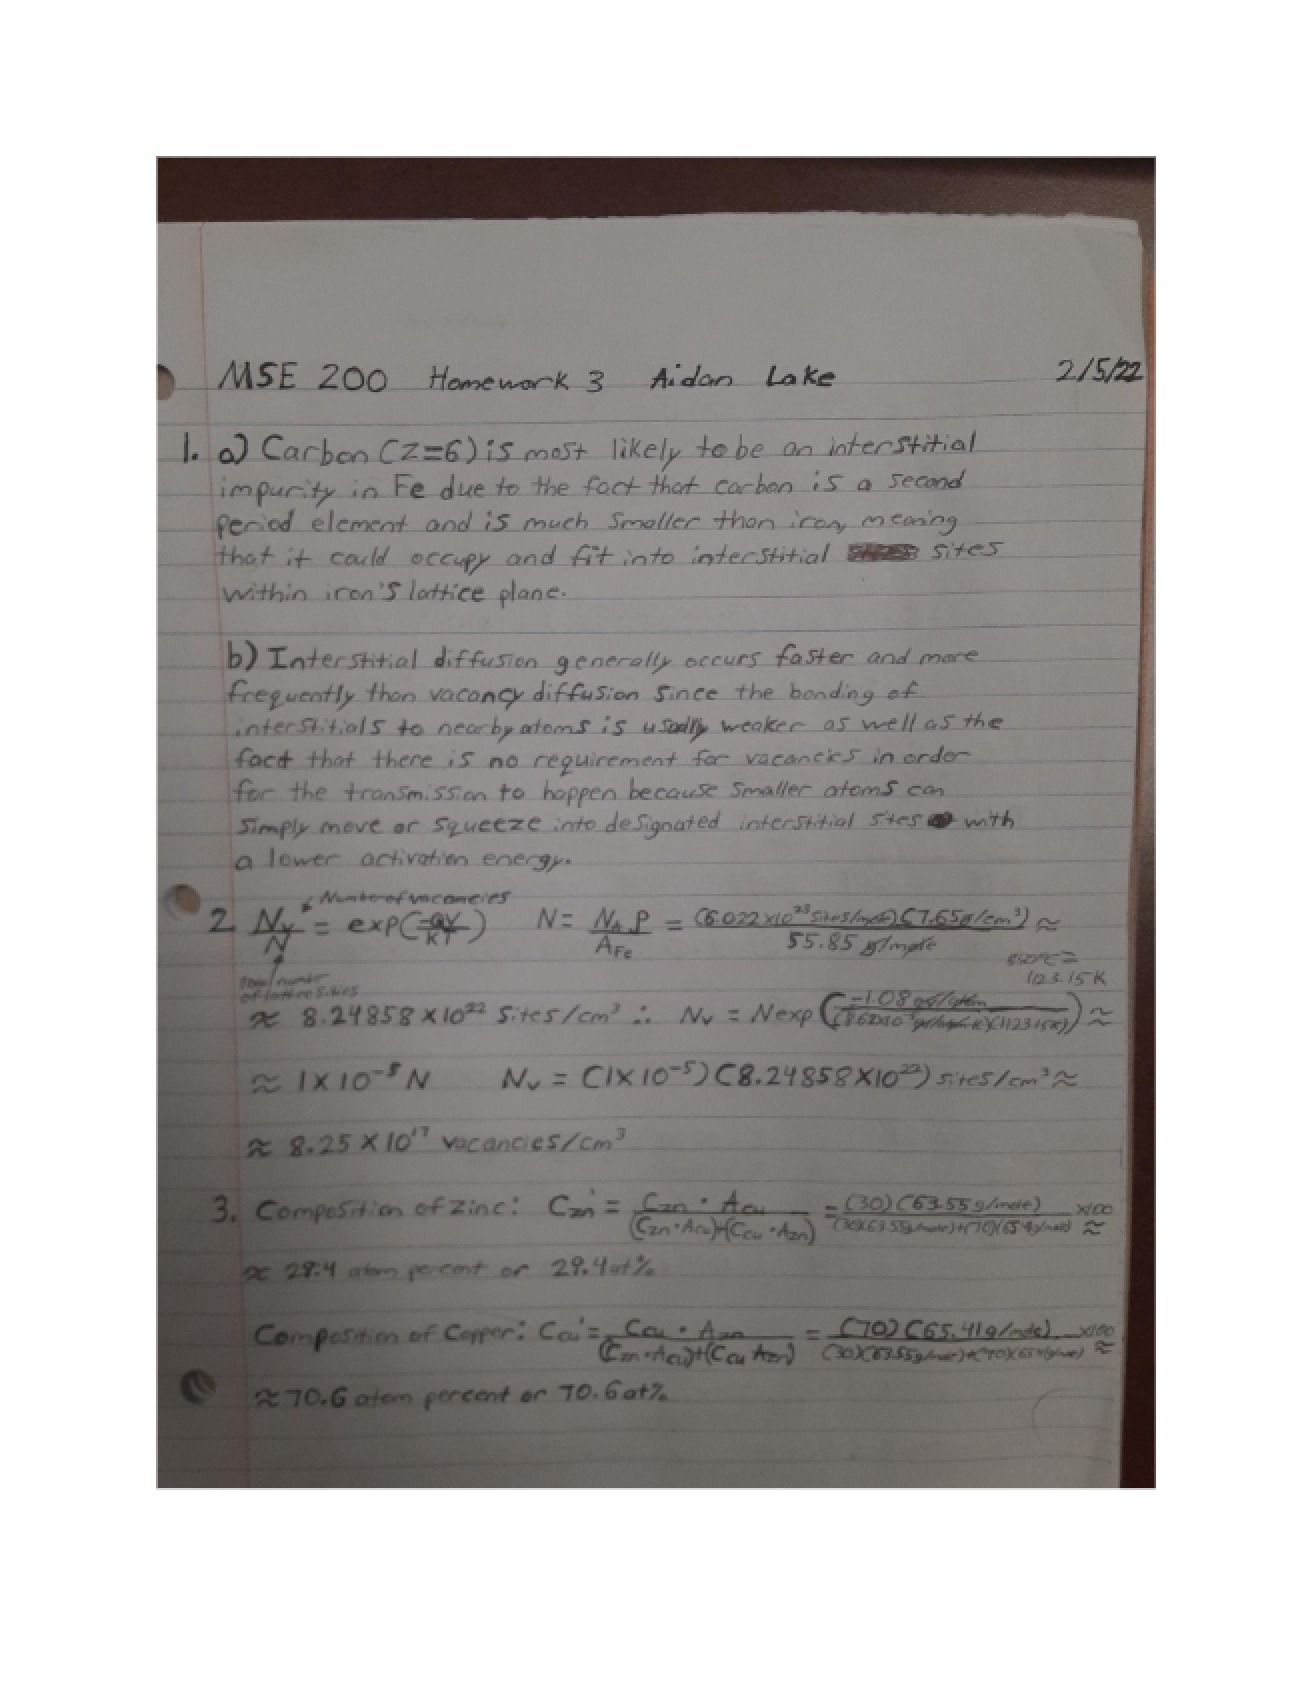 MSE 200 Homework 3 Aidan Lake 2/5/22
1. a) Carbon (Z=6) is most likely to be an interstitial
impurity in Fe due to the fact that carbon is a second
period element and is much smaller than iron, meaning
that it could occupy and fit into interstitial sites
within iron's lattice plane.
b) Interstitial diffusion generally occurs faster and more
frequently than vacancy diffusion since the bonding of
interstitials to nearby atoms is usually weaker as well as the
fact that there is no requirement for vacancies in order
for the transmission to happen because smaller atoms can
simply move or squeeze into designated interstitial sites with
a lower activation energy.
Number of vacancies
2. Nv/N = exp(-Qv/kT) N = NAρ/AFe = (6.022×10²³ sites/mole)(7.65g/cm³)/55.85 g/mole ≈
Total number of lattice sites
850°C = 1123.15K
≈ 8.24858×10²² sites/cm³ ∴ Nv = N exp(-1.08 /(8.62×10⁻⁵ )(1123.15K)) ≈
≈ 1×10⁻⁵N Nv = (1×10⁻⁵)(8.24858×10²²) sites/cm³ ≈
≈ 8.25×10¹⁷ vacancies/cm³
3. Composition of zinc: Czn' = Czn · Acu/(Czn·Acu)+(Ccu·Azn) = (30)(63.55g/mole)/(30)(63.55g/mole)+(70)(65.4g/mole) ×100 ≈
≈ 29.4 atom percent or 29.4at%
Composition of Copper: Ccu' = Ccu · Azn/(Czn·Acu)+(Ccu Azn) = (70)(65.41g/mole)/(30)(63.55g/mole)+(70)(65.41g/mole) ×100 ≈
≈ 70.6 atom percent or 70.6at%